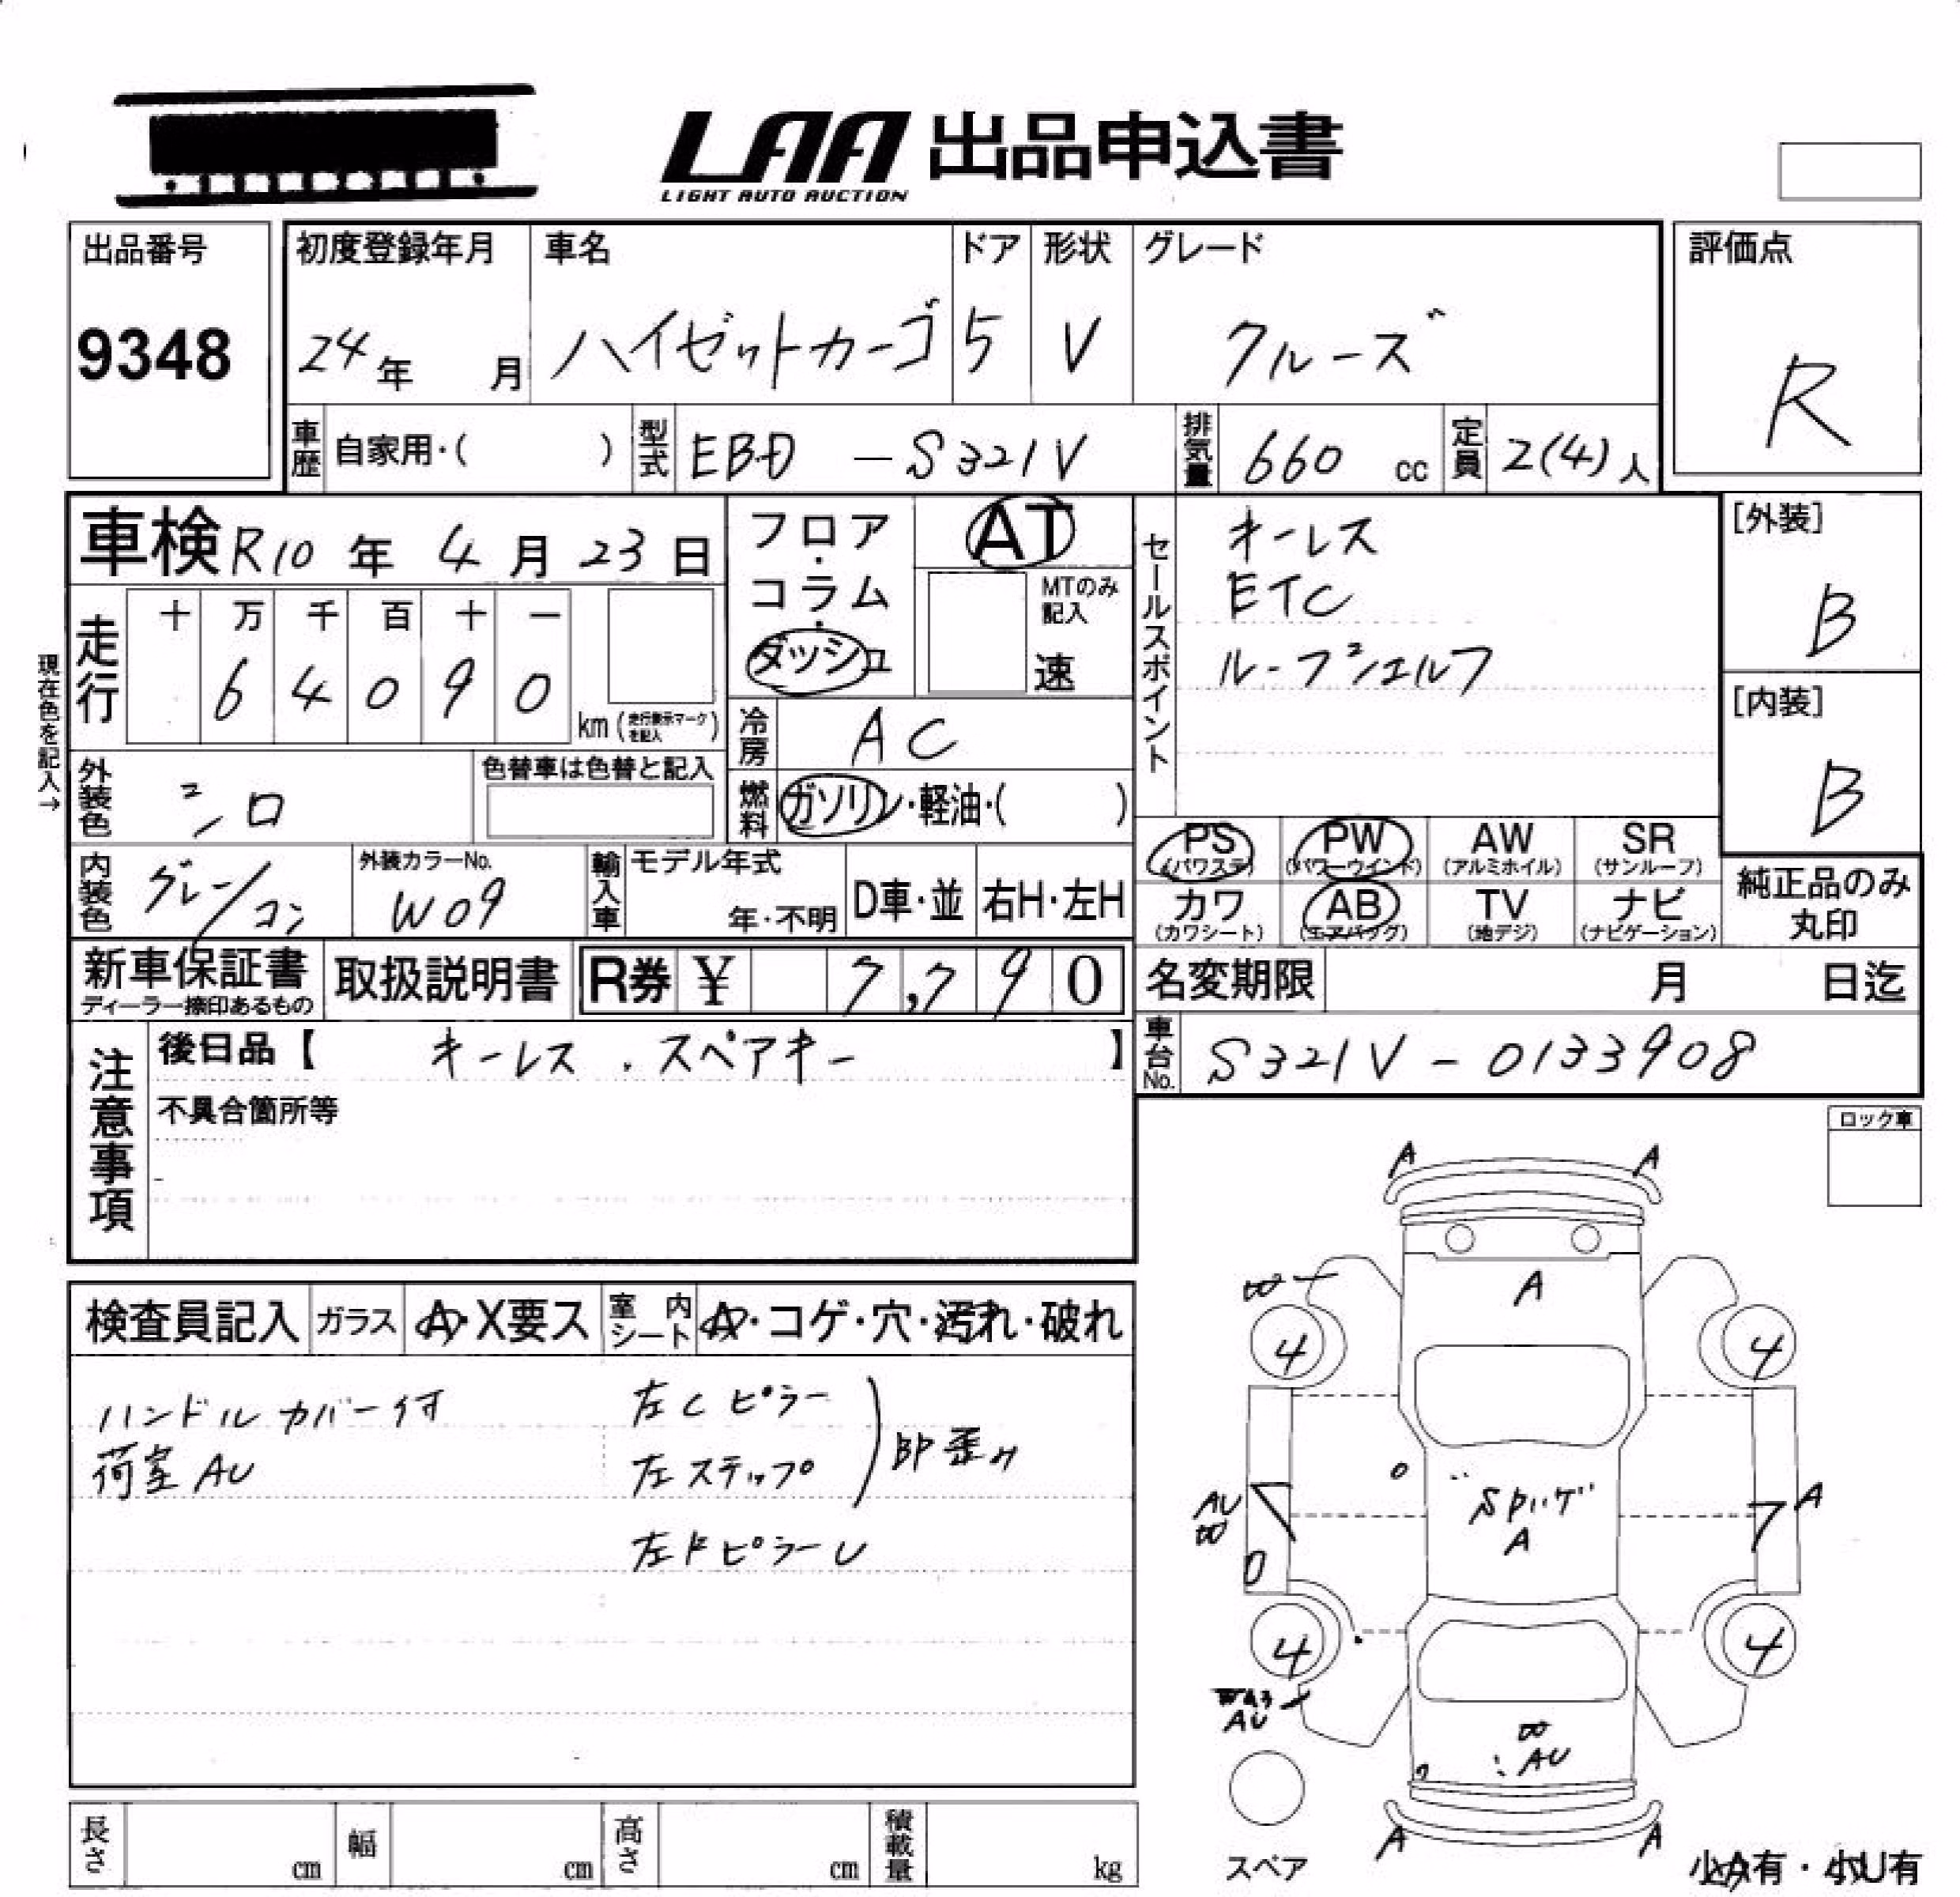 LAA 出品申込書
LIGHT AUTO AUCTION
出品番号
9348
初度登録年月
24年 月
車名
ハイゼットカーゴ
ドア
5
形状
V
グレード
クルーズ
評価点
R
車歴 自家用・( )
型式 EBD -S321V
排気量 660 cc
定員 2(4)人
車検 R10年 4月 23日
フロア・コラム・ダッシュ
AT
MTのみ記入
速
セールスポイント
キーレス
ETC
ルーフシェルフ
[外装]
B
[内装]
B
現在色を記入→
走行 十 万 千 百 十 一
6 4 0 9 0
km (走行表示マークを記入)
冷房 AC
燃料 ガソリン・軽油・( )
外装色 シロ
色替車は色替と記入
内装色 グレー/コン
外装カラーNo.
W09
輸入車 モデル年式
年・不明
D車・並 右H・左H
PS (パワステ)
PW (パワーウインド)
AW (アルミホイル)
SR (サンルーフ)
カワ (カワシート)
AB (エアバッグ)
TV (地デジ)
ナビ (ナビゲーション)
純正品のみ
丸印
新車保証書
ディーラー捺印あるもの
取扱説明書
R券 ¥ 7,790
名変期限 月 日迄
車台No. S321V-0133908
注意事項
後日品【 キーレス . スペアキー 】
不具合箇所等
ロック車
検査員記入 ガラス A・X要ス 室内シート A・コゲ・穴・汚れ・破れ
ハンドルカバー付
荷室AU
左Cピラー
左ステップ
印歪み
左FピラーU
A A
A
4 4
AU
A
A
4 4
AU
AU
A A
スペア
小A有・小U有
長さ cm
幅 cm
高さ cm
積載量 kg